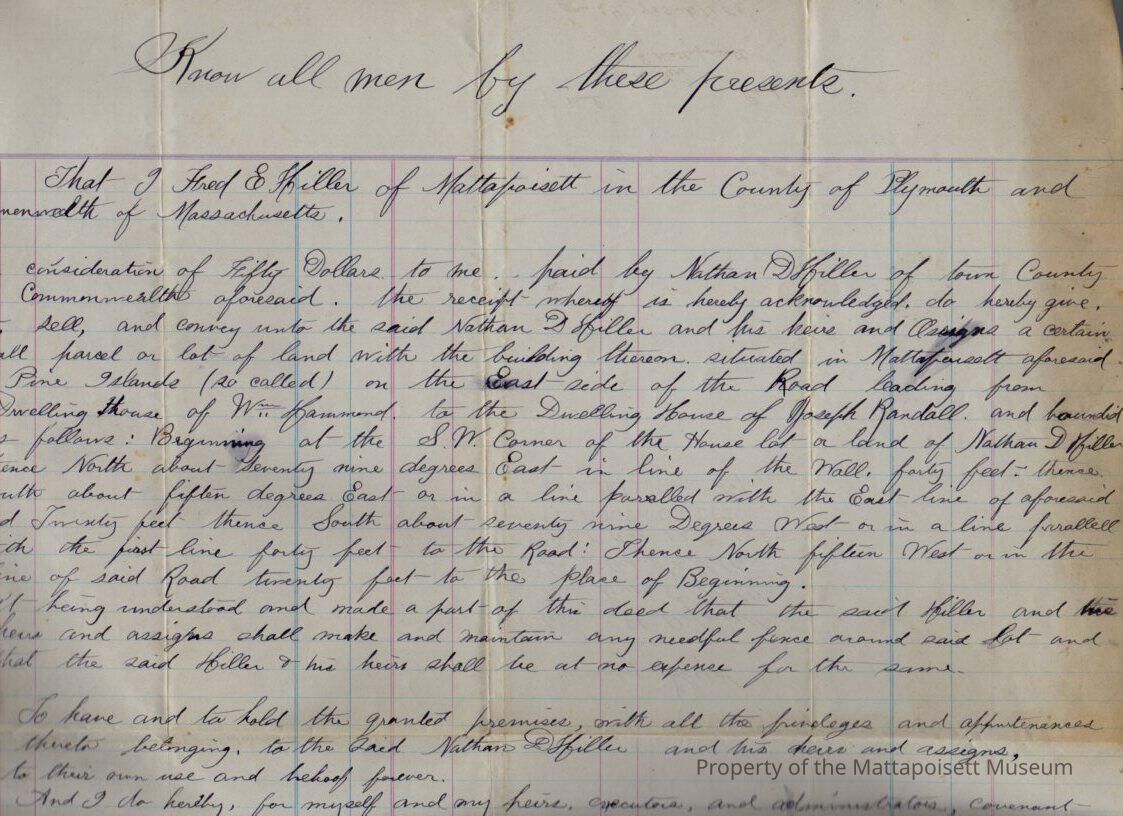 Know all men by these presents.
That I Fred E Hiller of Mattapoisett in the County of Plymouth and
monwealth of Massachusetts.
consideration of Fifty Dollars to me. paid by Nathan D Hiller of town County
Commonwealth aforesaid. the receipt whereof is hereby acknowledged. do hereby give.
sell, and convey unto the said Nathan D Hiller and his heirs and Assigns a certain
all parcel or lot of land with the building thereon. situated in Mattapoisett aforesaid.
Pine Islands (so called) on the East side of the Road leading from
Dwelling House of Wm Hammond. to the Dwelling House of Joseph Randall. and bounded
s follows: Beginning at the S.W. Corner of the House lot or land of Nathan D Hiller
ence North about Seventy nine degrees East in line of the Wall. forty feet - thence
uth about fiften degrees East or in a line paralled with the East line of aforesaid
d Twenty feet thence South about seventy nine Degrees West or in a line parallell
ith the first line forty feet to the Road: Thence North fifteen West or in the
ine of said Road twenty feet to the place of Beginning.
It being understood and made a part of this deed that the said Hiller and his
heirs and assigns shall make and maintain any needful fence around said Lot and
that the said Hiller & his heirs shall be at no expence for the same.
To have and to hold the granted premises, with all the privileges and appurtenances
thereto belonging. to the said Nathan D Hiller and his heirs and assigns,
to their own use and behoof forever.
And I do hereby, for myself and my heirs, executors, and administrators, covenant
Property of the Mattapoisett Museum